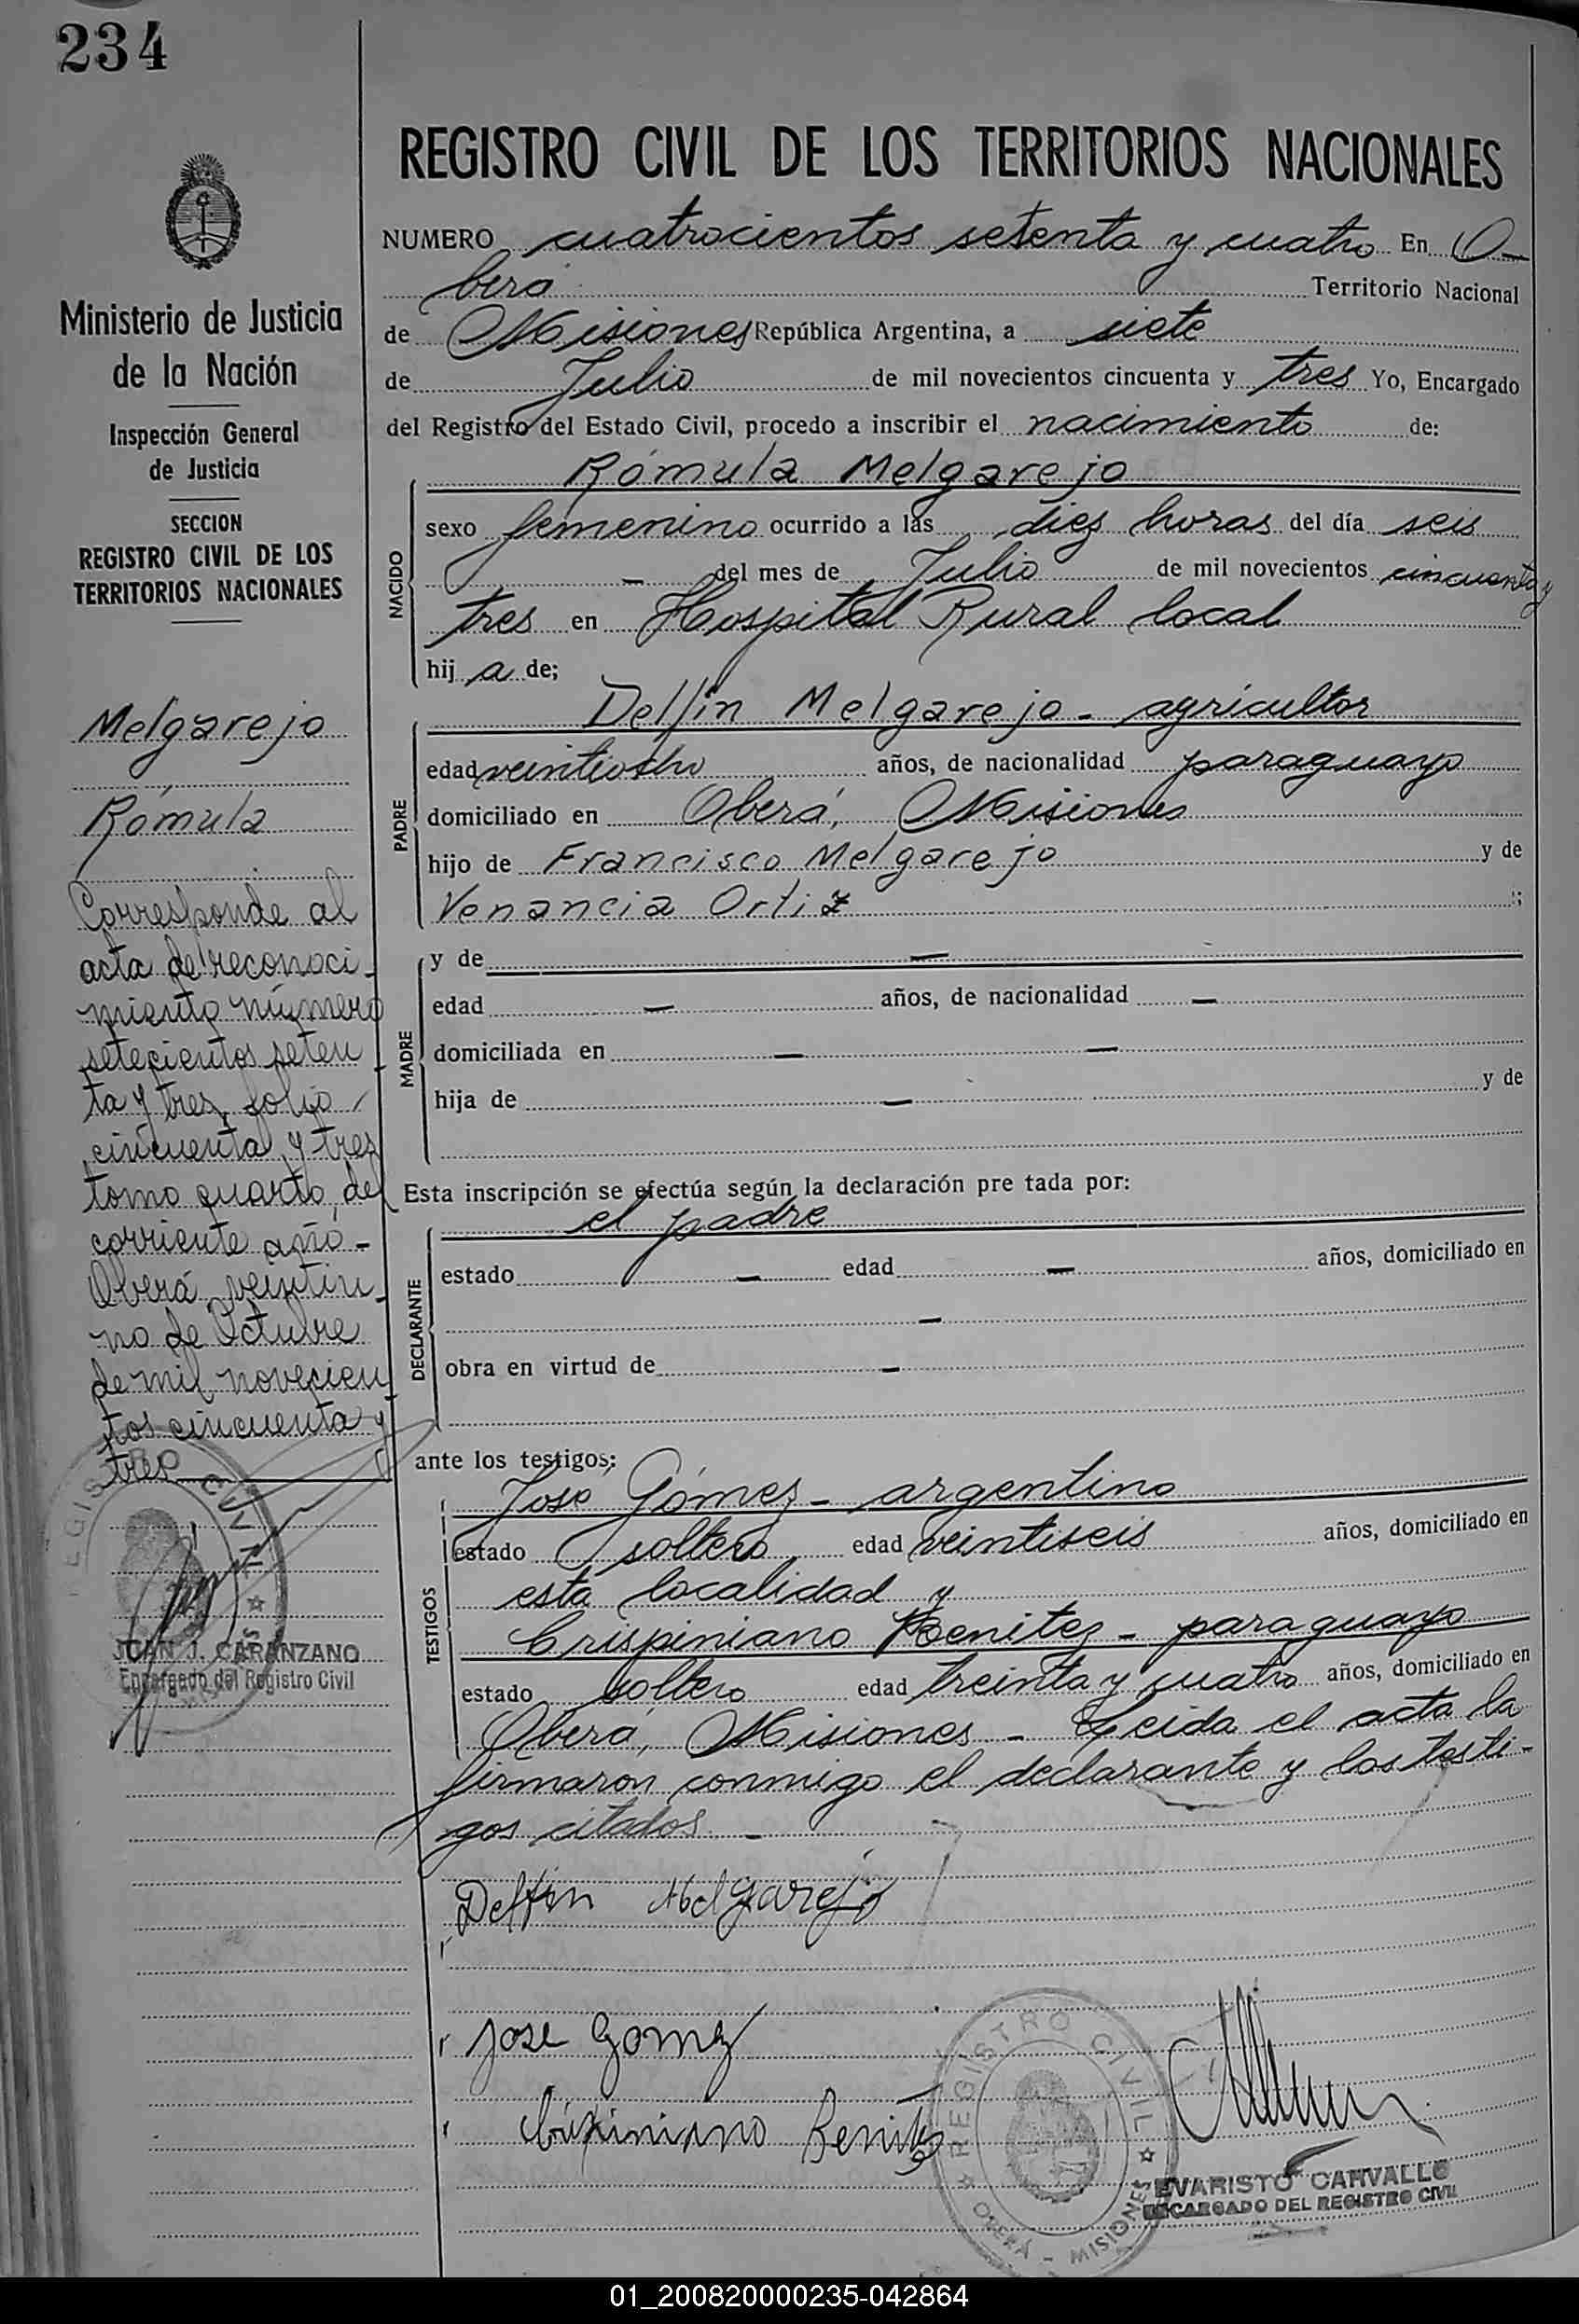 234
REGISTRO CIVIL DE LOS TERRITORIOS NACIONALES
Ministerio de Justicia
de la Nación
Inspección General
de Justicia
SECCION
REGISTRO CIVIL DE LOS
TERRITORIOS NACIONALES
Melgarejo
Rómula
Corresponde al
acta de reconoci-
miento número
setecientos seten-
ta y tres, folio
cincuenta y tres
tomo cuarto, del
corriente año-
Oberá, veintiu-
no de Octubre
de mil novecien-
tos cincuenta y
tres
REGISTRO CIVIL
JUAN J. CARANZANO
Encargado del Registro Civil
NUMERO cuatrocientos setenta y cuatro En O-
berá Territorio Nacional
de Misiones República Argentina, a siete
de Julio de mil novecientos cincuenta y tres Yo, Encargado
del Registro del Estado Civil, procedo a inscribir el nacimiento de:
NACIDO
Rómula Melgarejo
sexo femenino ocurrido a las diez horas del día seis
— del mes de Julio de mil novecientos cincuenta y
tres en Hospital Rural local
hij a de;
PADRE
Delfin Melgarejo - agricultor
edad veintiocho años, de nacionalidad paraguayo
domiciliado en Oberá, Misiones
hijo de Francisco Melgarejo y de
Venancia Ortiz ;
MADRE
y de —
edad — años, de nacionalidad —
domiciliada en — —
hija de — y de
Esta inscripción se efectúa según la declaración pre tada por:
DECLARANTE
el padre
estado — edad — años, domiciliado en
—
obra en virtud de —
ante los testigos:
TESTIGOS
José Gómez - argentino
estado soltero edad veintiseis años, domiciliado en
esta localidad y
Crispiniano Benitez - paraguayo
estado soltero edad treinta y cuatro años, domiciliado en
Oberá, Misiones - Leida el acta la
firmaron conmigo el declarante y los testi-
gos citados -
Delfin Melgarejo
Jose Gomez
Crispiniano Benitez
REGISTRO CIVIL
OBERÁ - MISIONES
EVARISTO CARVALLO
ENCARGADO DEL REGISTRO CIVIL
01_200820000235-042864